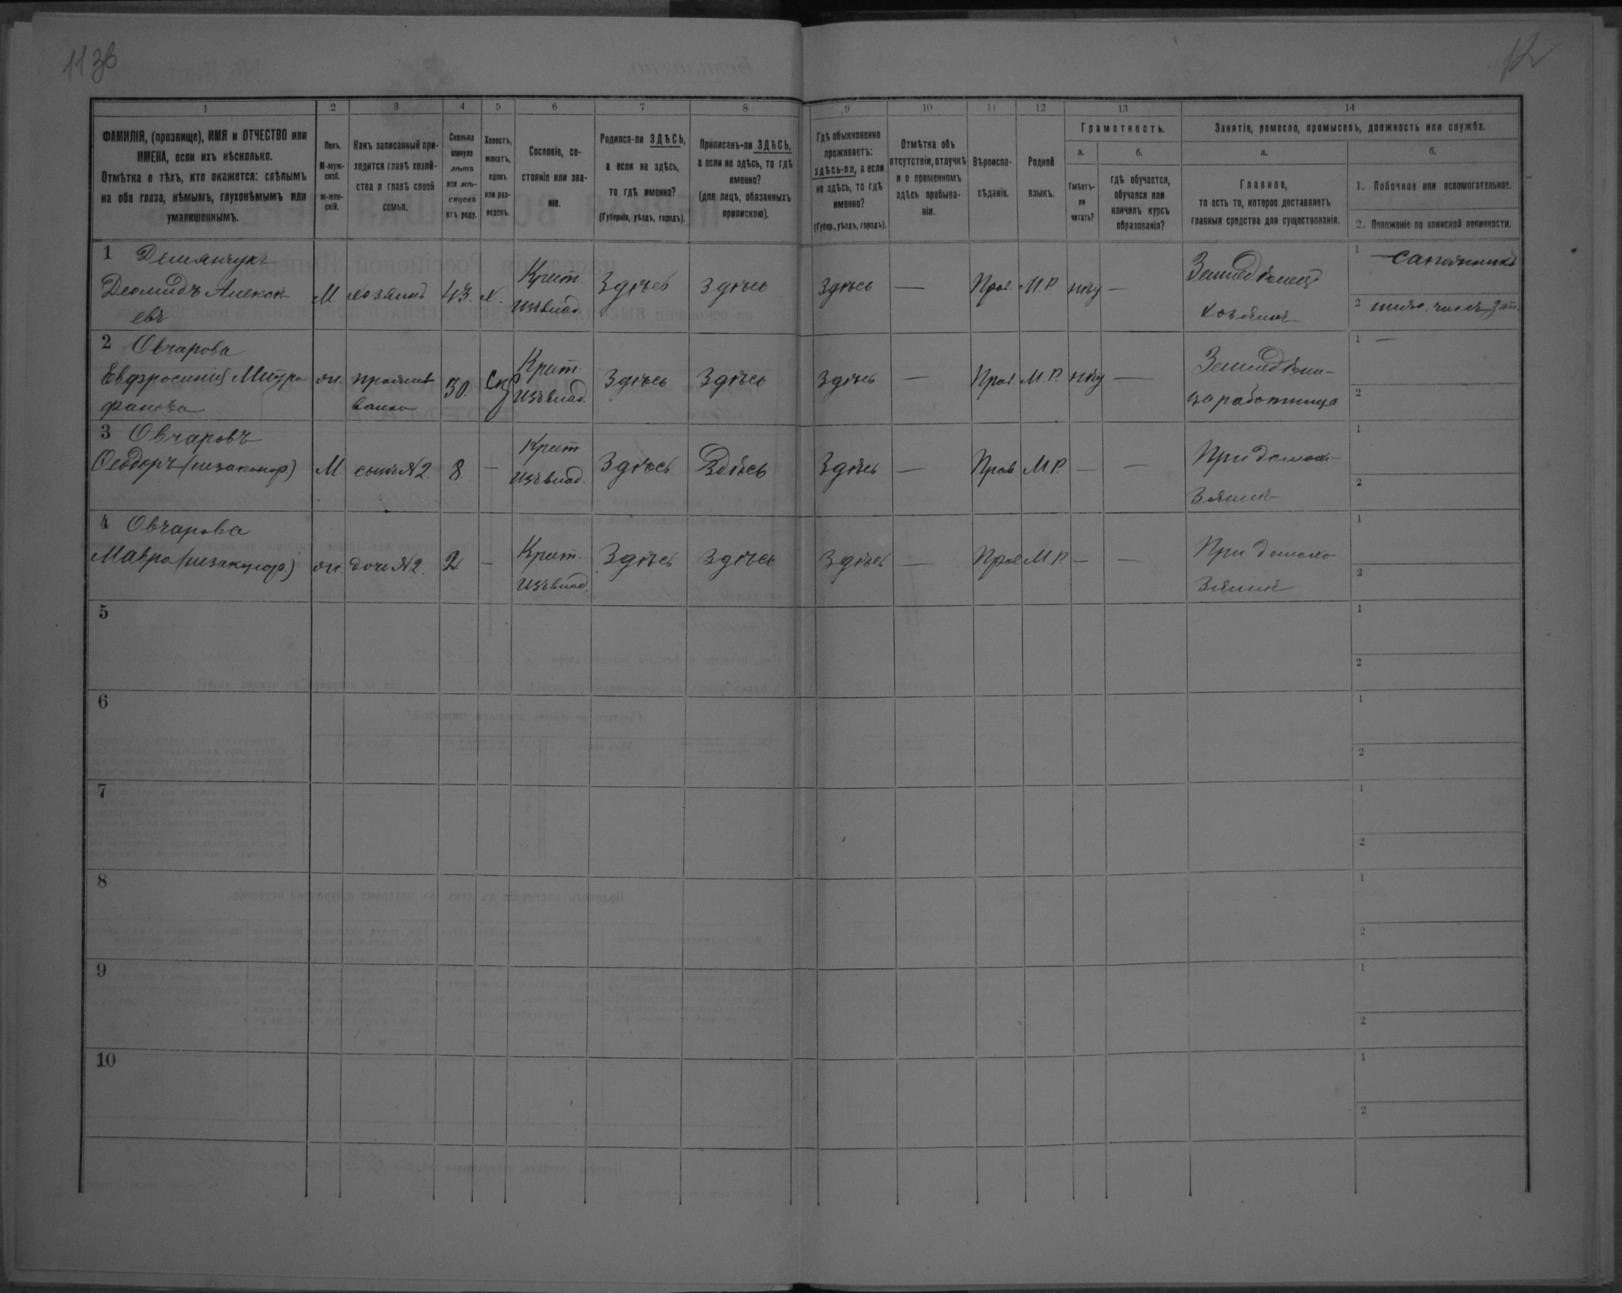 113б
12
1 2 3 4 5 6 7 8 9 10 11 12 13 14
ФАМИЛІЯ, (прозвище), ИМЯ и ОТЧЕСТВО или
ИМЕНА, если ихъ нѣсколько.
Отмѣтка о тѣхъ, кто окажется: слѣпымъ
на оба глаза, нѣмымъ, глухонѣмымъ или
умалишеннымъ.
Полъ.
М-муж-
ской.
Ж-жен-
скій.
Какъ записанный при-
ходится главѣ хозяй-
ства и главѣ своей
семьи.
Сколько
минуло
лѣтъ
или мѣ-
сяцевъ
отъ роду.
Холостъ,
женатъ,
вдовъ
или раз-
веденъ.
Сословіе, со-
стояніе или зва-
ніе.
Родился-ли ЗДѢСЬ,
а если не здѣсь,
то гдѣ именно?
(Губернія, уѣздъ, городъ).
Приписанъ-ли ЗДѢСЬ,
а если не здѣсь, то гдѣ
именно?
(для лицъ, обязанныхъ
припискою).
Гдѣ обыкновенно
проживаетъ:
здѣсь-ли, а если
не здѣсь, то гдѣ
именно?
(Губер., уѣздъ, городъ).
Отмѣтка объ
отсутствіи, отлучкѣ
и о временномъ
здѣсь пребыва-
ніи.
Вѣроиспо-
вѣданіе.
Родной
языкъ.
Грамотность.
а.
Умѣетъ-
ли
читать?
б.
гдѣ обучается,
обучался или
кончилъ курсъ
образованія?
Занятіе, ремесло, промыселъ, должность или служба.
а.
Главное,
то есть то, которое доставляетъ
главныя средства для существованія.
б.
1. Побочное или вспомогательное.
2. Положеніе по воинской повинности.
1 Демянчукъ
Деомидъ Алексѣ
евъ
М хозяинъ 43 х. Крест.
изъ влад.
Здѣсь Здѣсь Здѣсь — Прав М.Р. нѣт —
Земледѣлец
хозяинъ
1 — сапожникъ
2
2 Овчарова
Евфросинія Митро
фанова
ж. 30. Крест
изъ влад.
Здѣсь Здѣсь Здѣсь — Прав М.Р. нѣт —
Земледѣлка-
заработница
1 —
2
3 Овчаровъ
Ѳеодоръ (незаконор)
М сынъ №2. 8 — Крест
изъ влад.
Здѣсь Здѣсь Здѣсь — Прав М.Р. — —
При домохо-
зяинѣ
1
2
4 Овчарова
Мавра (незаконор)
ж. дочь №2. 2 — Крест.
изъ влад.
Здѣсь Здѣсь Здѣсь — Прав М.Р. — —
При домохо
зяинѣ
1
2
5
1
2
6
1
2
7
1
2
8
1
2
9
1
2
10
1
2